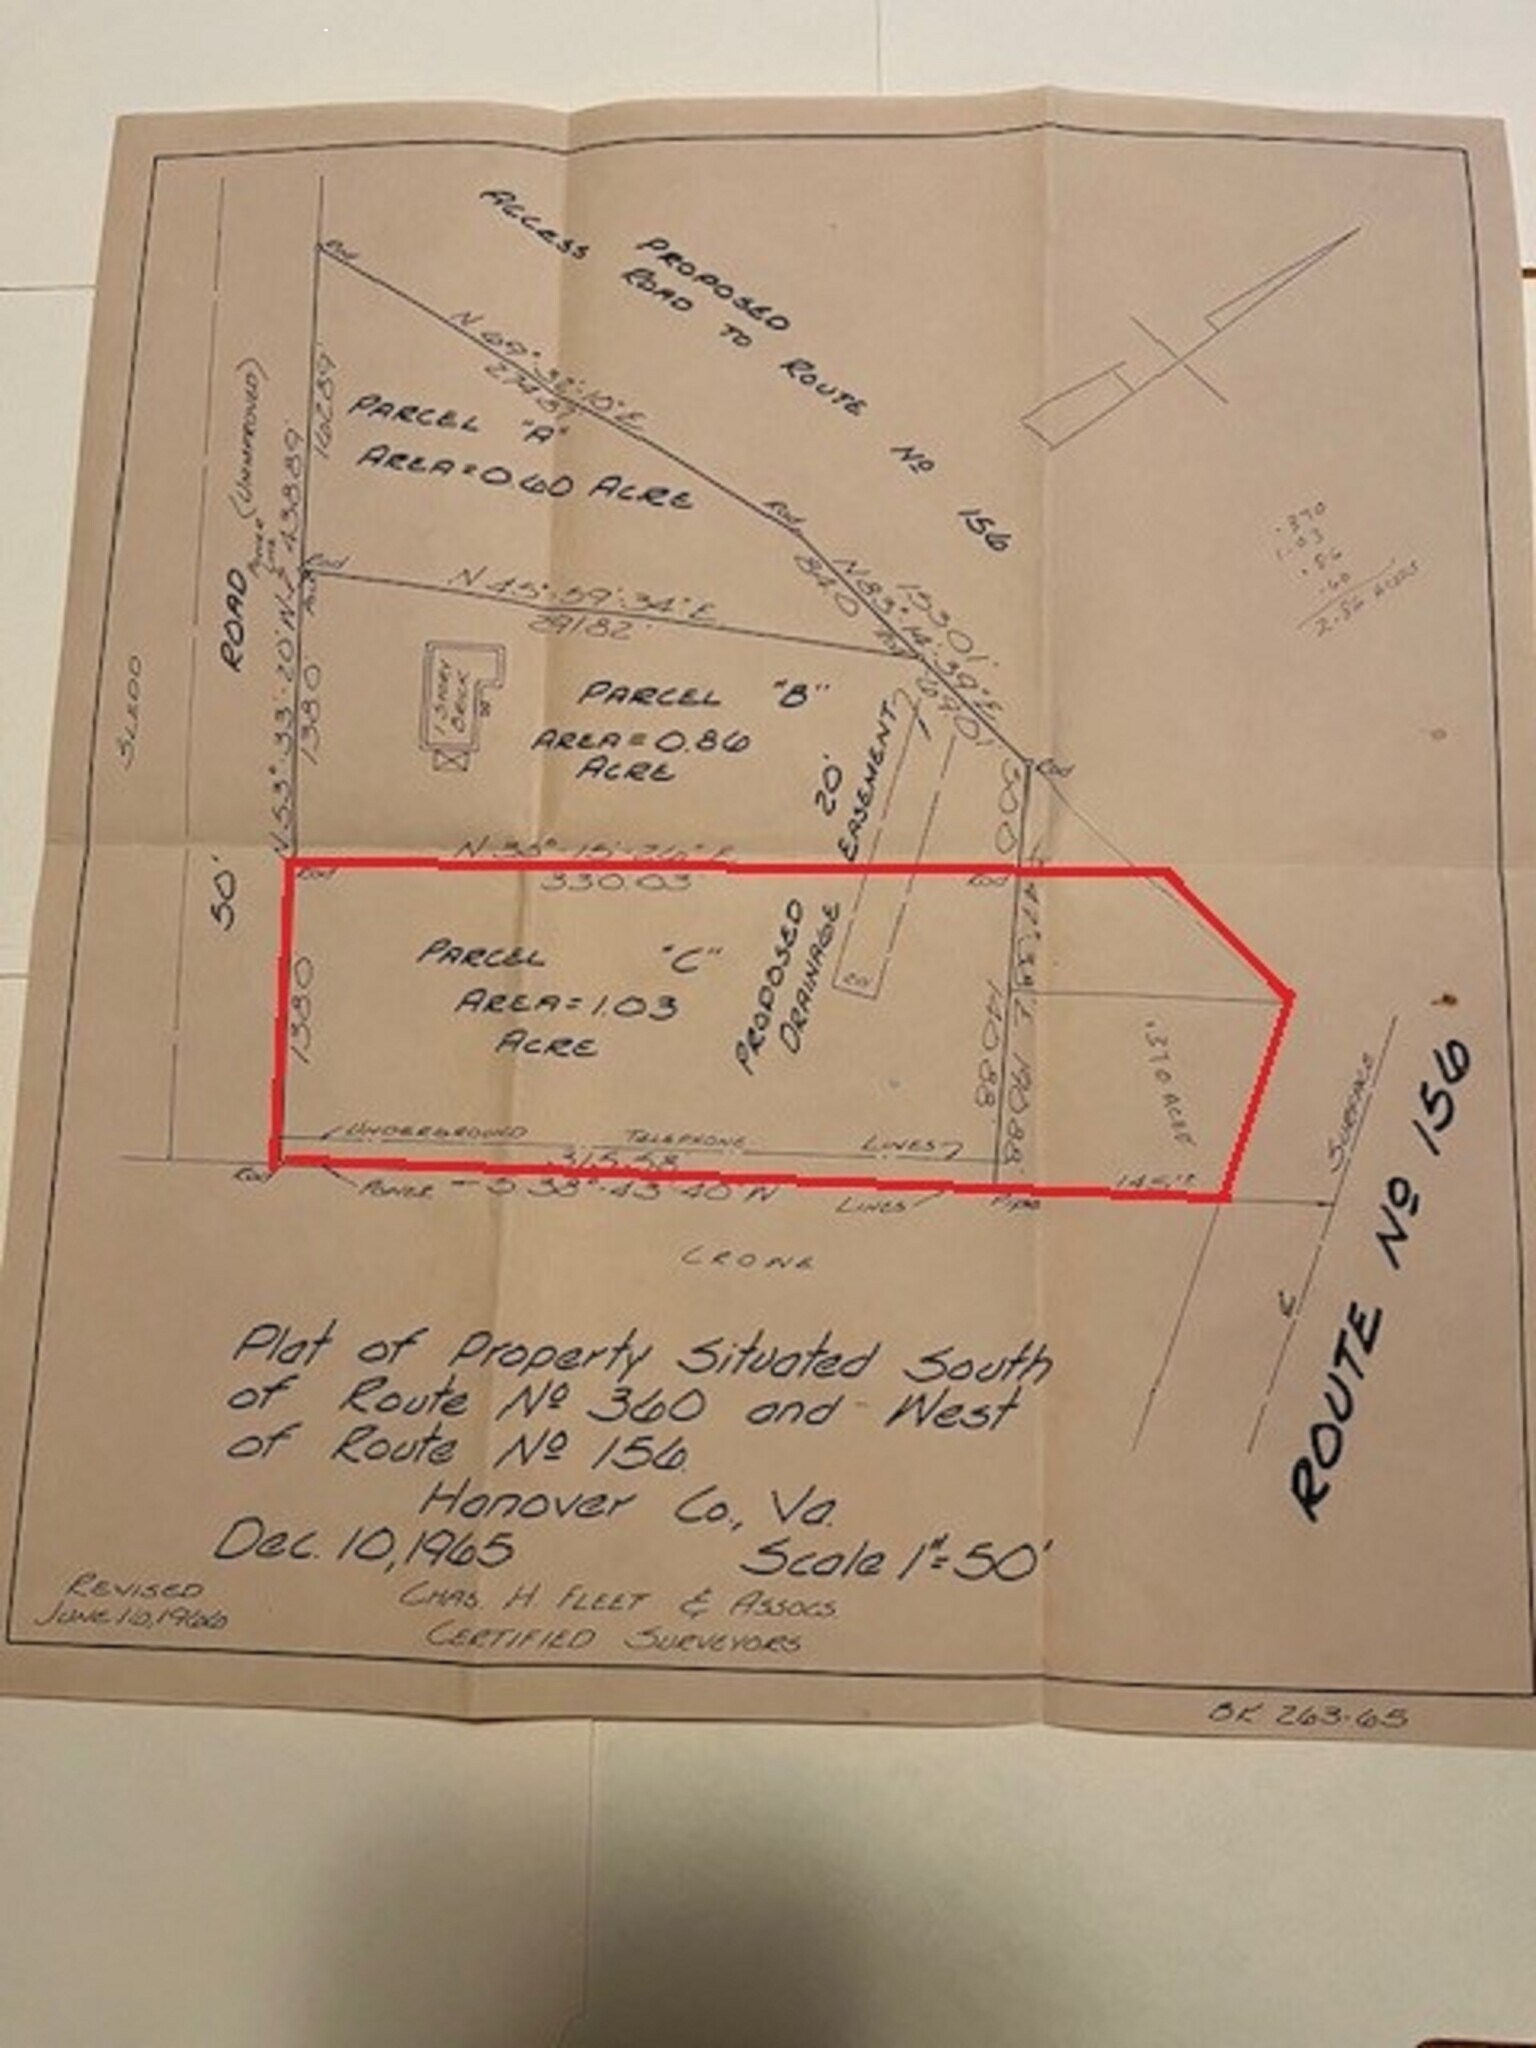 ACCESS PROPOSED
ROAD TO ROUTE Nº 156
Rod
N 69°-32'-10" E
274.87'
162.89'
PARCEL "A"
AREA=0.60 ACRE
ROAD (UNIMPROVED)
438.89'
Rod
Rod
84.0
153.01'
N 45°-59'-34" E
291.82'
Rod
69.01'
.370
1.03
.86
.60
2.86 ACRES
SLEDD
N.53°-33'-20" W
138.0'
1 STORY
BRICK
PARCEL "B"
AREA=0.86
ACRE
20'
EASEMENT
Rod
30.0
50'
N-38°-15'-26" E
330.03
Rod
Rod
138.0
PARCEL "C"
AREA=1.03
ACRE
PROPOSED
DRAINAGE
20'
140.88'
.370 ACRE
UNDERGROUND TELEPHONE LINES
315.58
POWER - S-38°-43'-40" W LINES
Rod
Pipe
SURFACE
ROUTE Nº 156
CRONE
Plat of Property Situated South
of Route Nº 360 and West
of Route Nº 156.
Hanover Co., Va.
Dec. 10, 1965 Scale 1"=50'
REVISED
JUNE 16, 1966
CHAS. H. FLEET & ASSOCS.
CERTIFIED SURVEYORS
BK 263-65